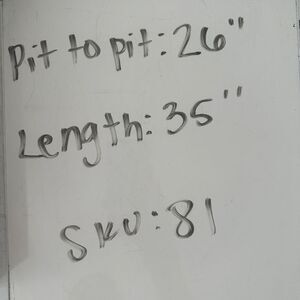 Pit to pit: 26"
Length: 35"
SKU: 81